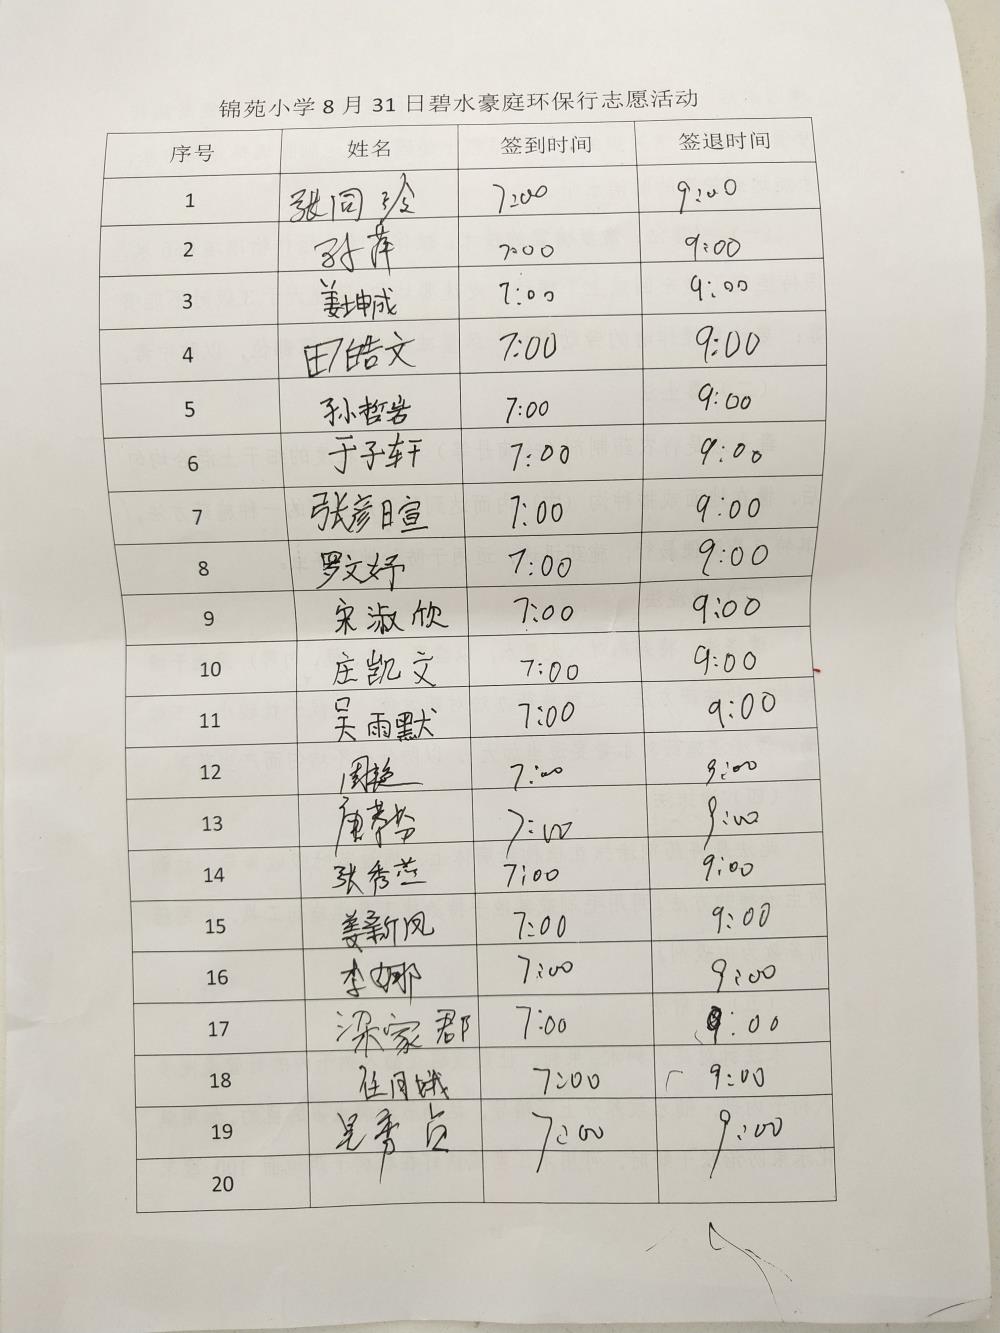 锦苑小学8月31日碧水豪庭环保行志愿活动
序号 姓名 签到时间 签退时间
1 张同玲 7:00 9:00
2 孙萍 7:00 9:00
3 姜坤成 7:00 9:00
4 田皓文 7:00 9:00
5 孙哲岩 7:00 9:00
6 于子轩 7:00 9:00
7 张彦日宣 7:00 9:00
8 罗文妤 7:00 9:00
9 宋淑欣 7:00 9:00
10 庄凯文 7:00 9:00
11 吴雨默 7:00 9:00
12 周艳 7:00 9:00
13 7:00 9:00
14 张秀燕 7:00 9:00
15 姜新凤 7:00 9:00
16 李娜 7:00 9:00
17 梁家郡 7:00 9:00
18 任月娥 7:00 9:00
19 吴秀贞 7:00 9:00
20